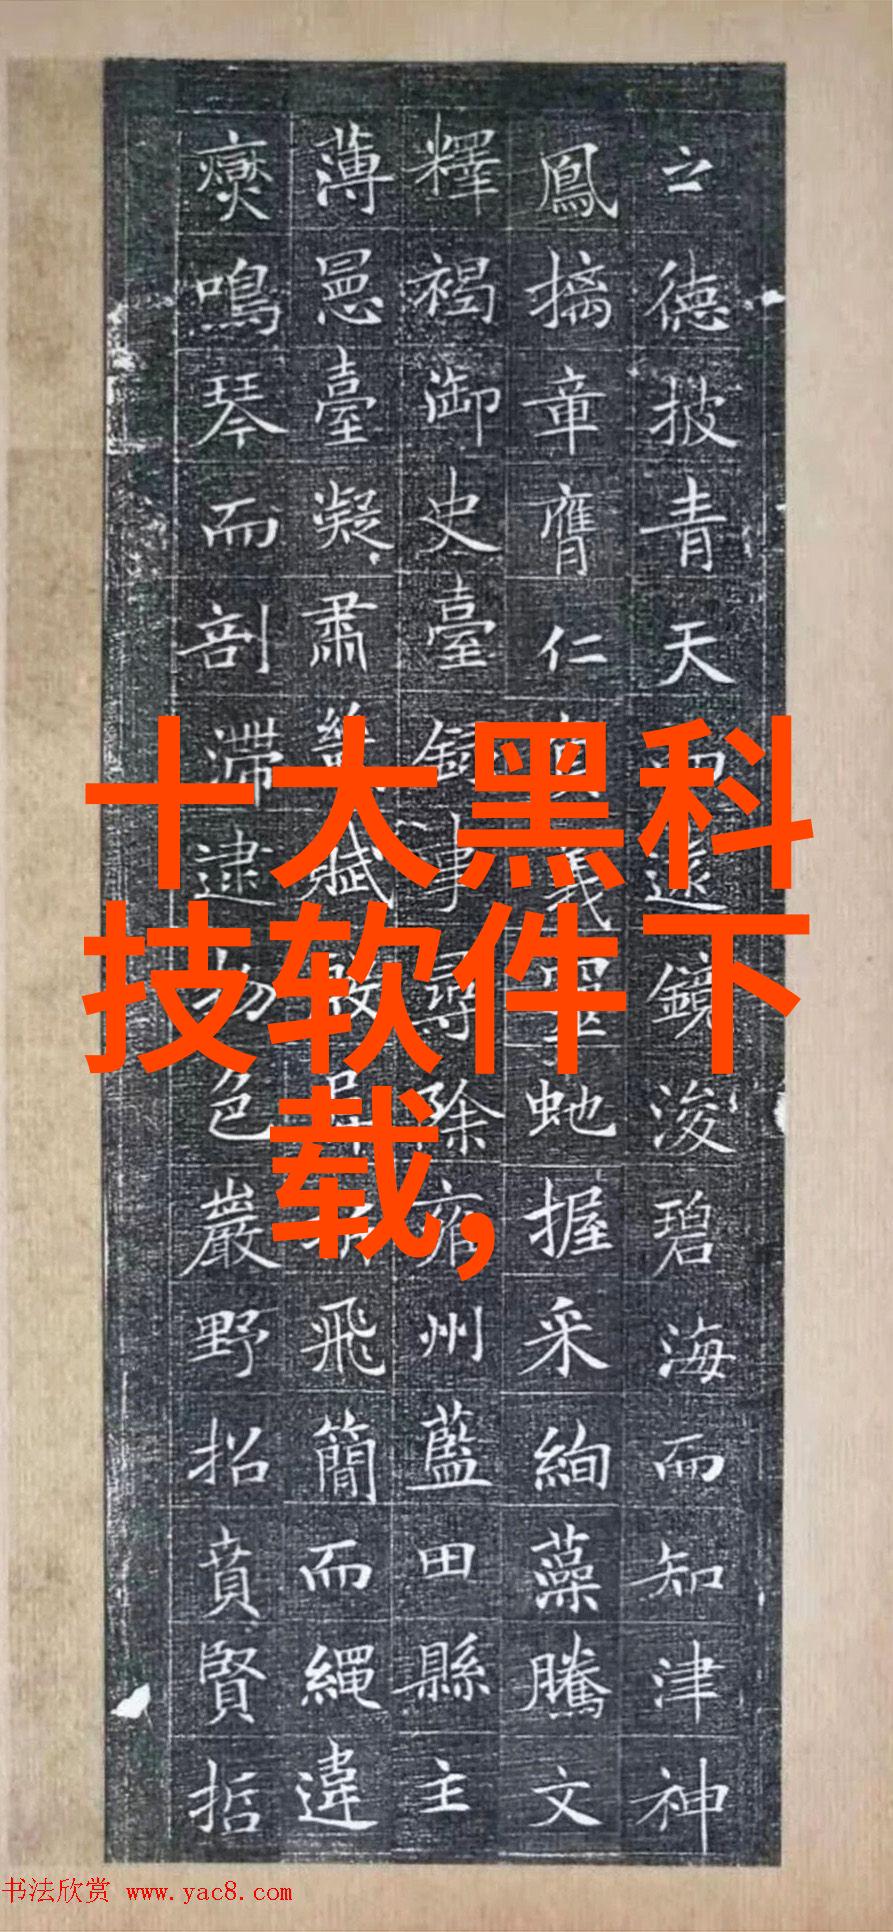 之德披青天而遠鏡浚碧海而知津神
鳳摛章膺仁義虵握采絢藻騰文
釋褐御史臺錄事尋除雍州藍田縣主
薄臺凝肅賦飛簡而繩違
鳴琴而剖滯逮物色巖野招賁賢哲
十大黑科
技软件下
载，
书法欣赏 www.yac8.com